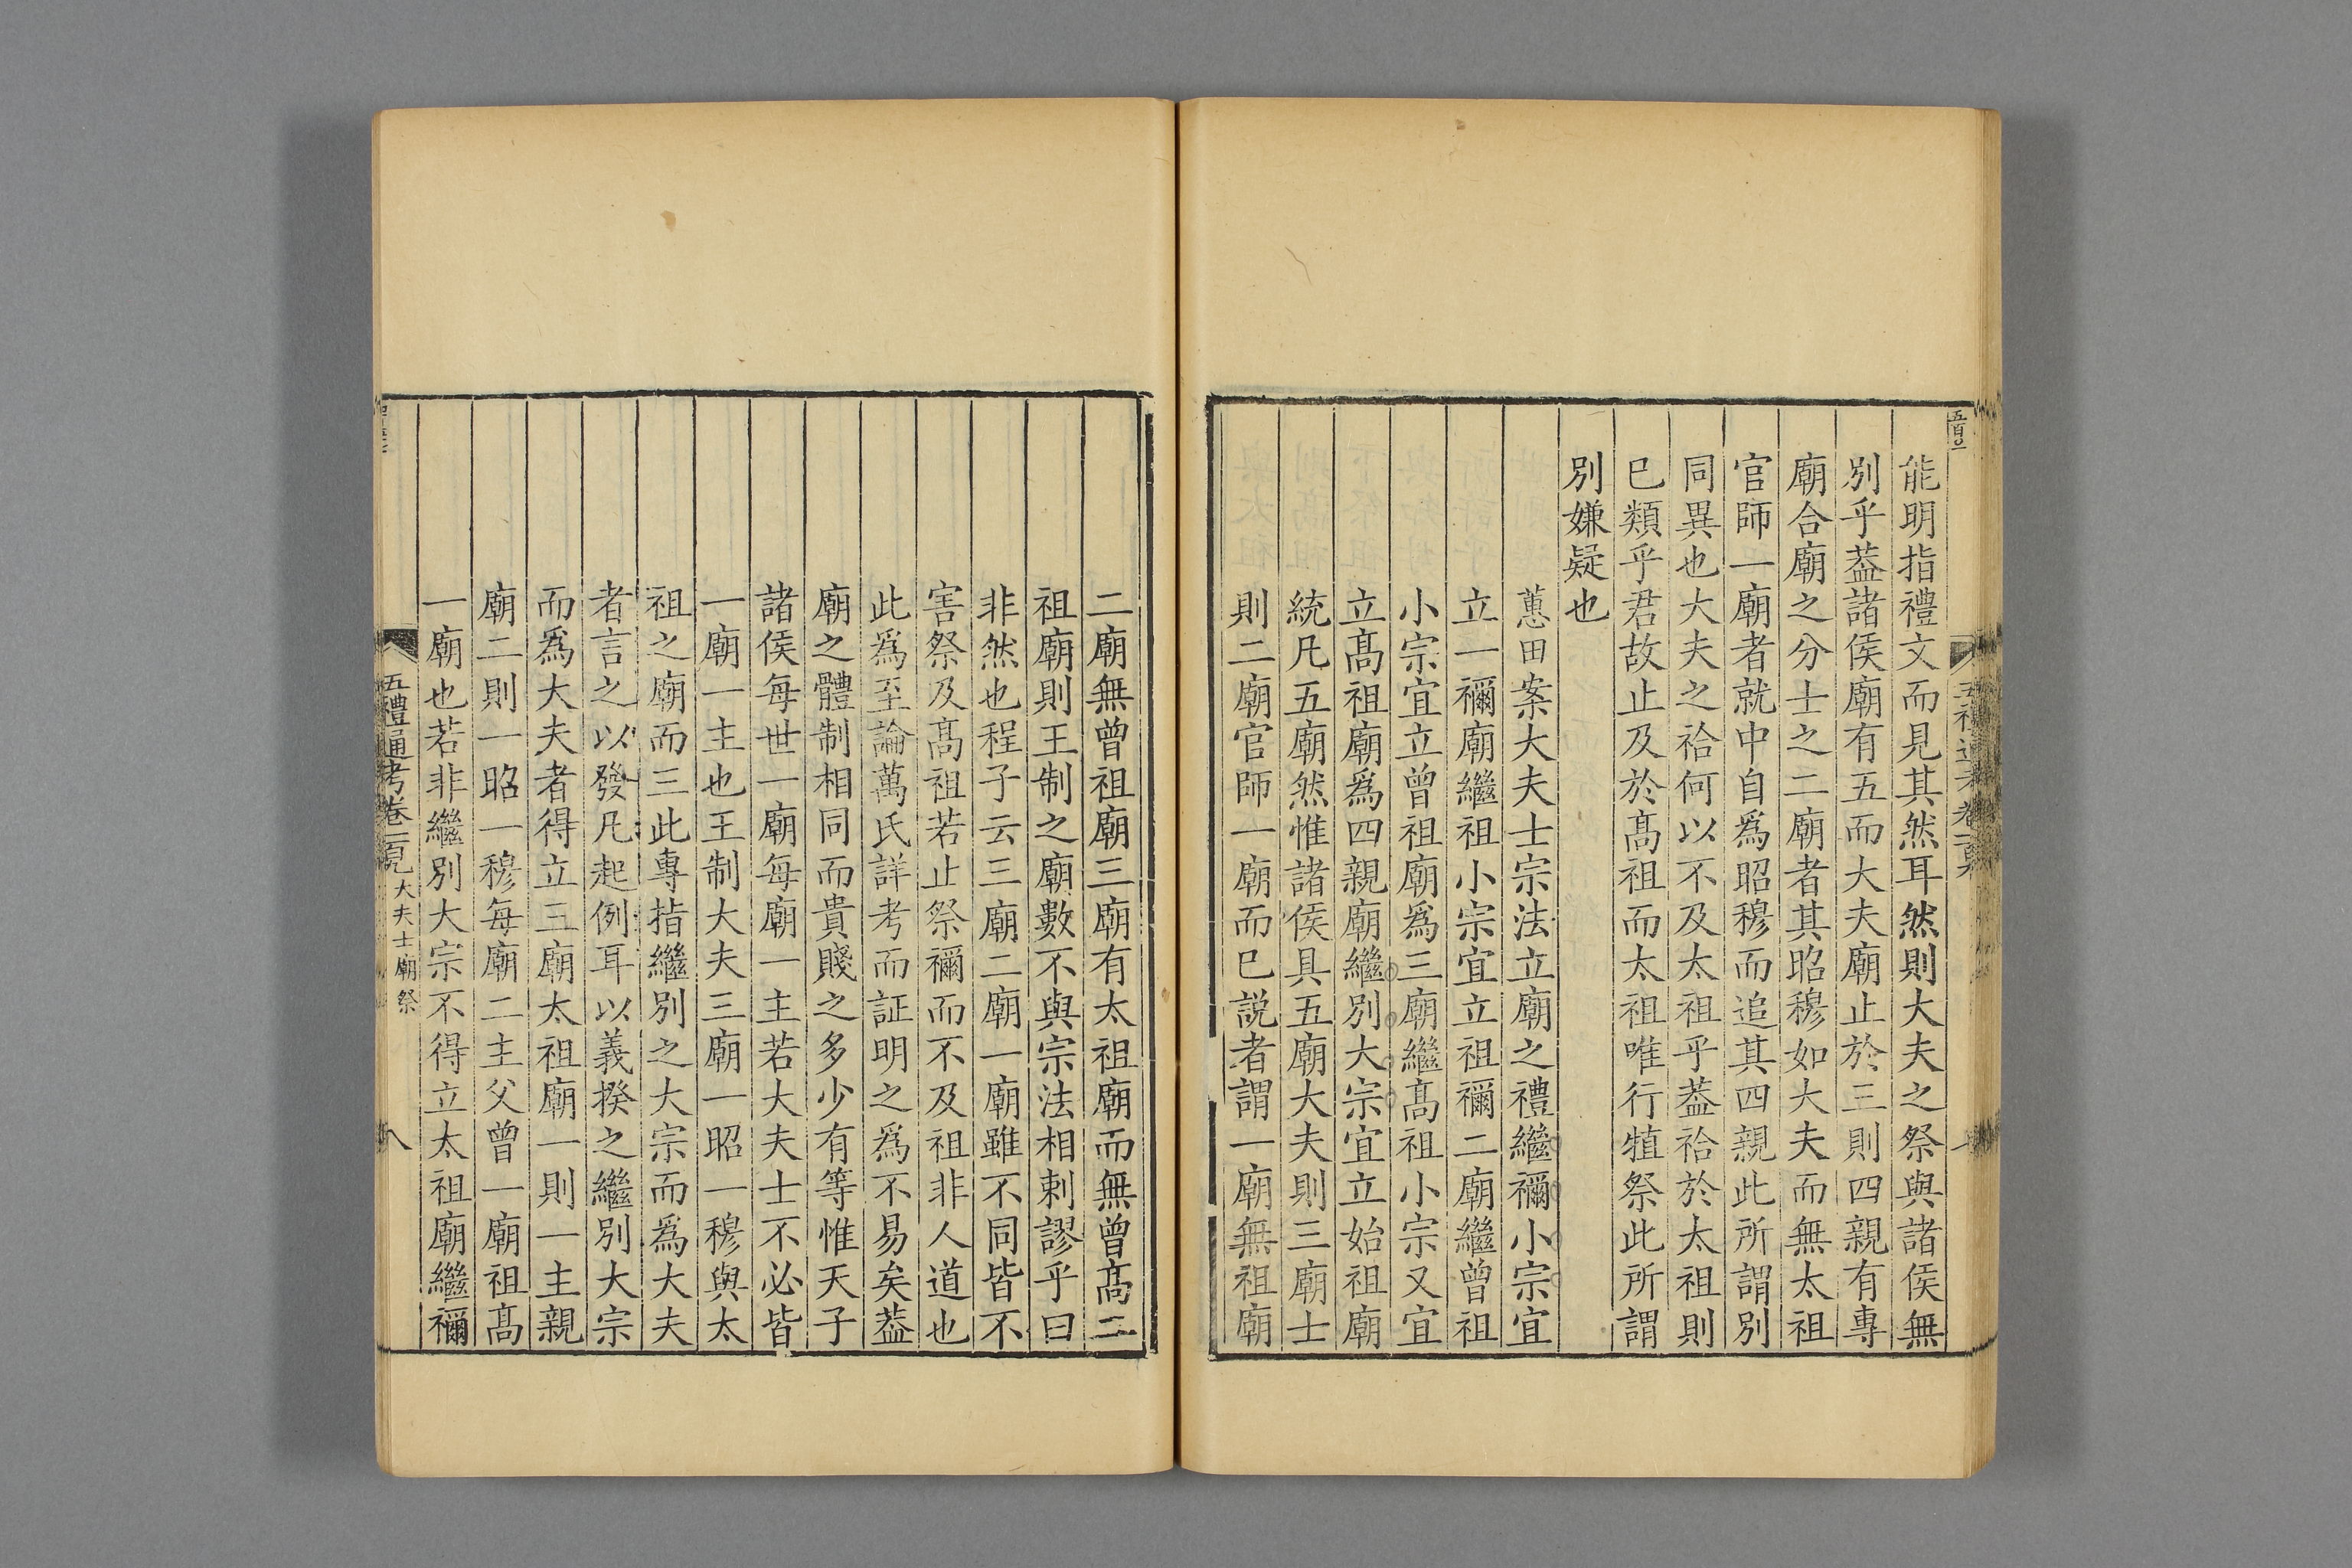 能明指禮文而見其然耳然則大夫之祭與諸侯無
別乎葢諸侯廟有五而大夫廟止於三則四親有專
廟合廟之分士之二廟者其昭穆如大夫而無太祖
官師一廟者就中自爲昭穆而追其四親此所謂別
同異也大夫之祫何以不及太祖乎葢祫於太祖則
已類乎君故止及於髙祖而太祖唯行犆祭此所謂
別嫌疑也
蕙田案大夫士宗法立廟之禮繼禰小宗宜
立一禰廟繼祖小宗宜立祖禰二廟繼曾祖
小宗宜立曾祖廟爲三廟繼髙祖小宗又宜
立髙祖廟爲四親廟繼別大宗宜立始祖廟
統凡五廟然惟諸侯具五廟大夫則三廟士
則二廟官師一廟而已説者謂一廟無祖廟
二廟無曾祖廟三廟有太祖廟而無曾髙二
祖廟則王制之廟數不與宗法相剌謬乎曰
非然也程子云三廟二廟一廟雖不同皆不
害祭及髙祖若止祭禰而不及祖非人道也
此爲至論萬氏詳考而証明之爲不易矣葢
廟之體制相同而貴賤之多少有等惟天子
諸侯每世一廟每廟一主若大夫士不必皆
一廟一主也王制大夫三廟一昭一穆與太
祖之廟而三此專指繼別之大宗而爲大夫
者言之以發凡起例耳以義揆之繼別大宗
而爲大夫者得立三廟太祖廟一則一主親
廟二則一昭一穆每廟二主父曾一廟祖髙
一廟也若非繼別大宗不得立太祖廟繼禰
五禮通考卷一百九 大夫士廟祭 八